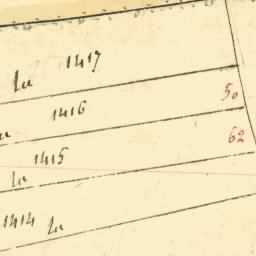 1417
la
50
1416
la
62
1415
la
1414 la